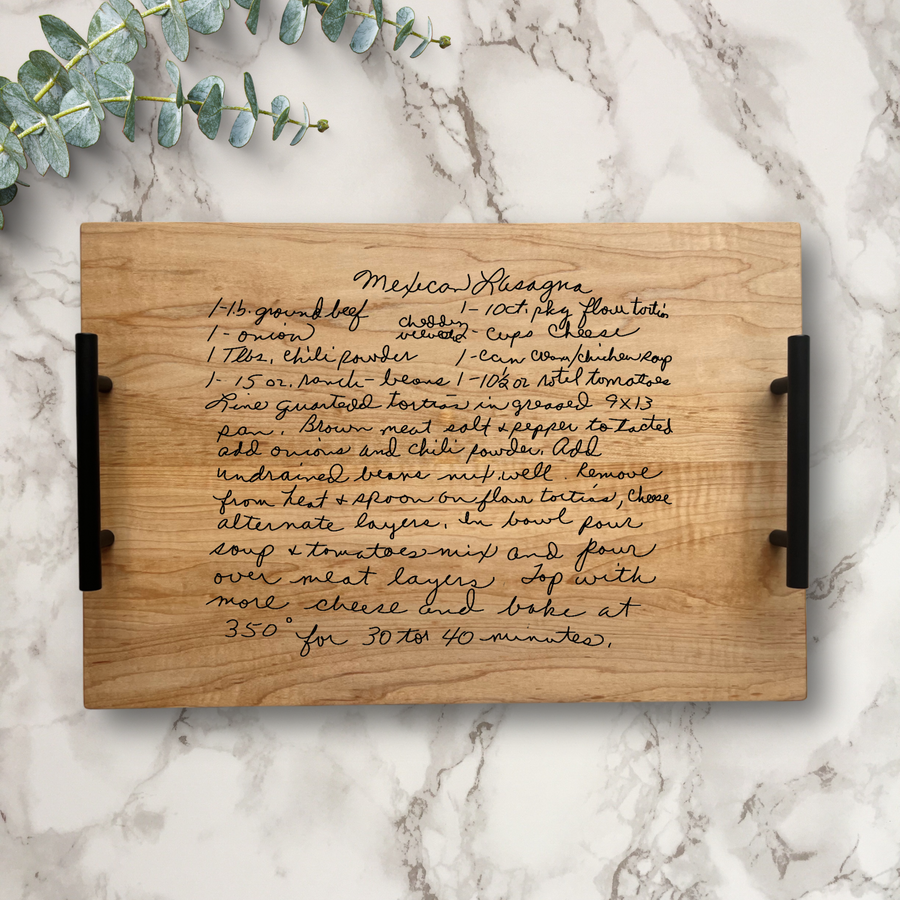 Mexican Lasagna
1-lb. ground beef 1- 10ct. pkg flour tortias
1- onion cheddar velveeta 2- cups Cheese
1 Tlbs. chili powder 1-can cream/chicken soup
1- 15 oz. ranch-beans 1-10½ oz rotel tomatoes
Line quartedd tortias in greased 9x13
pan. Brown meat salt & pepper to tasted
add onions and chili powder. Add
undrained beans mix well. Remove
from heat & spoon on flour tortias, cheese
alternate layers. In bowl pour
soup & tomatoes mix and pour
over meat layers Top with
more cheese and bake at
350° for 30 to 40 minutes.